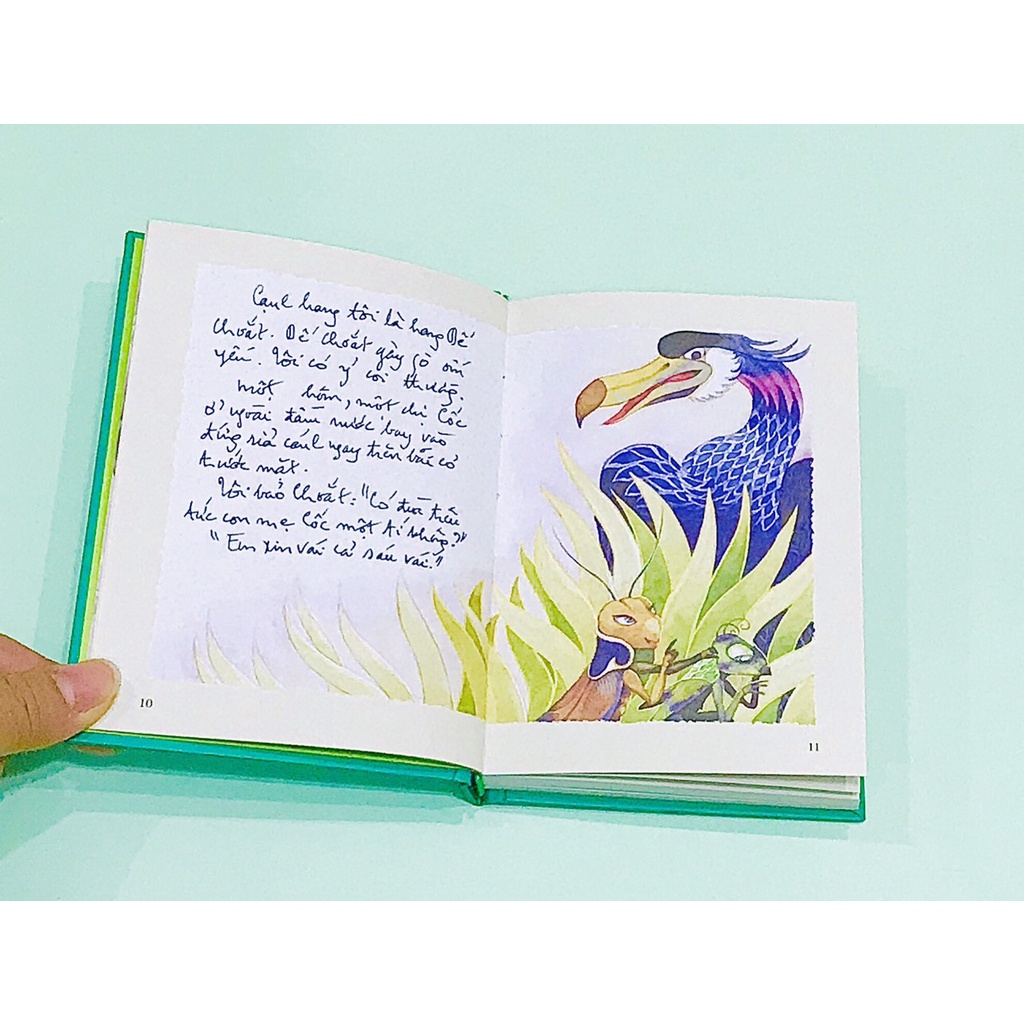 Cạnh hang tôi là hang Dế
Choắt. Dế Choắt gày gò ốm
yếu. Tôi có ý coi thường.
Một hôm, một chị Cốc
ở ngoài đầm nước bay vào
đứng rỉa cánh ngay trên bãi cỏ
trước mặt.
Tôi bảo Choắt: "Có đùa trêu
tức con mẹ Cốc một tí không?"
"Em xin vái cả sáu vái."
10
11